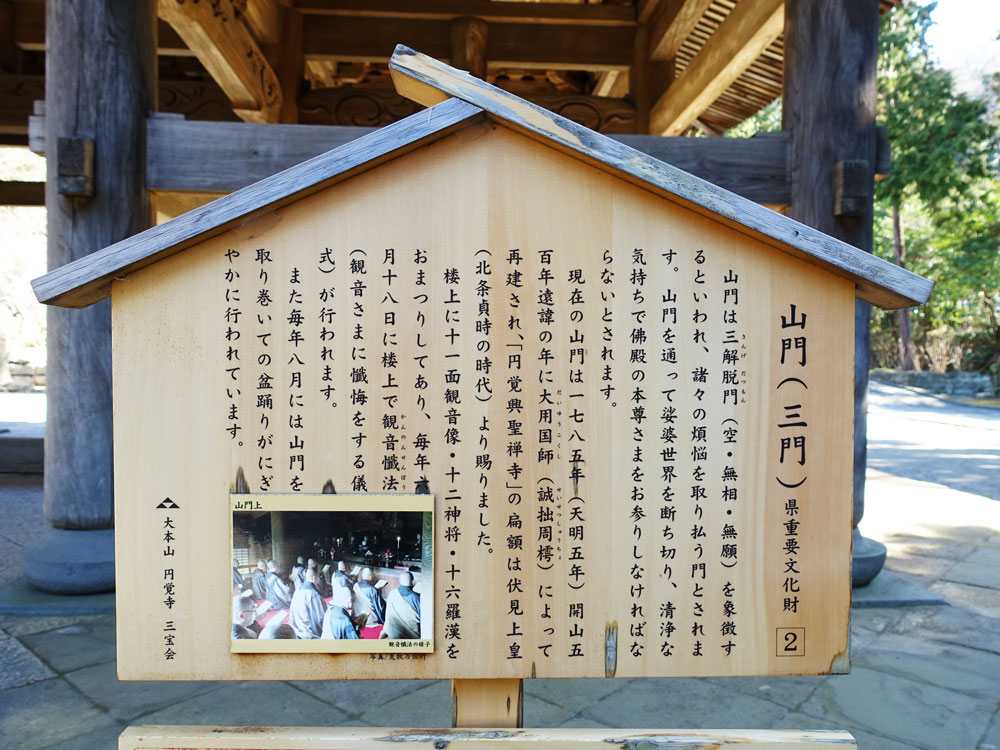 山門(三門)県重要文化財 2
山門は三解脱門(空・無相・無願)を象徴す
さんげだつもん
るといわれ、諸々の煩悩を取り払う門とされま
す。山門を通って娑婆世界を断ち切り、清浄な
気持ちで佛殿の本尊さまをお参りしなければな
らないとされます。
現在の山門は一七八五年(天明五年)開山五
百年遠諱の年に大用国師(誠拙周樗)によって
だいゆうこくし せいせつしゅうちょ
再建され、「円覚興聖禅寺」の扁額は伏見上皇
(北条貞時の時代)より賜りました。
楼上に十一面観音像・十二神将・十六羅漢を
おまつりしてあり、毎年六
月十八日に楼上で観音懺法
かんのんせんぼう
(観音さまに懺悔をする儀
式)が行われます。
また毎年八月には山門を
取り巻いての盆踊りがにぎ
やかに行われています。
山門上
観音懺法の様子
大本山 円覚寺 三宝会